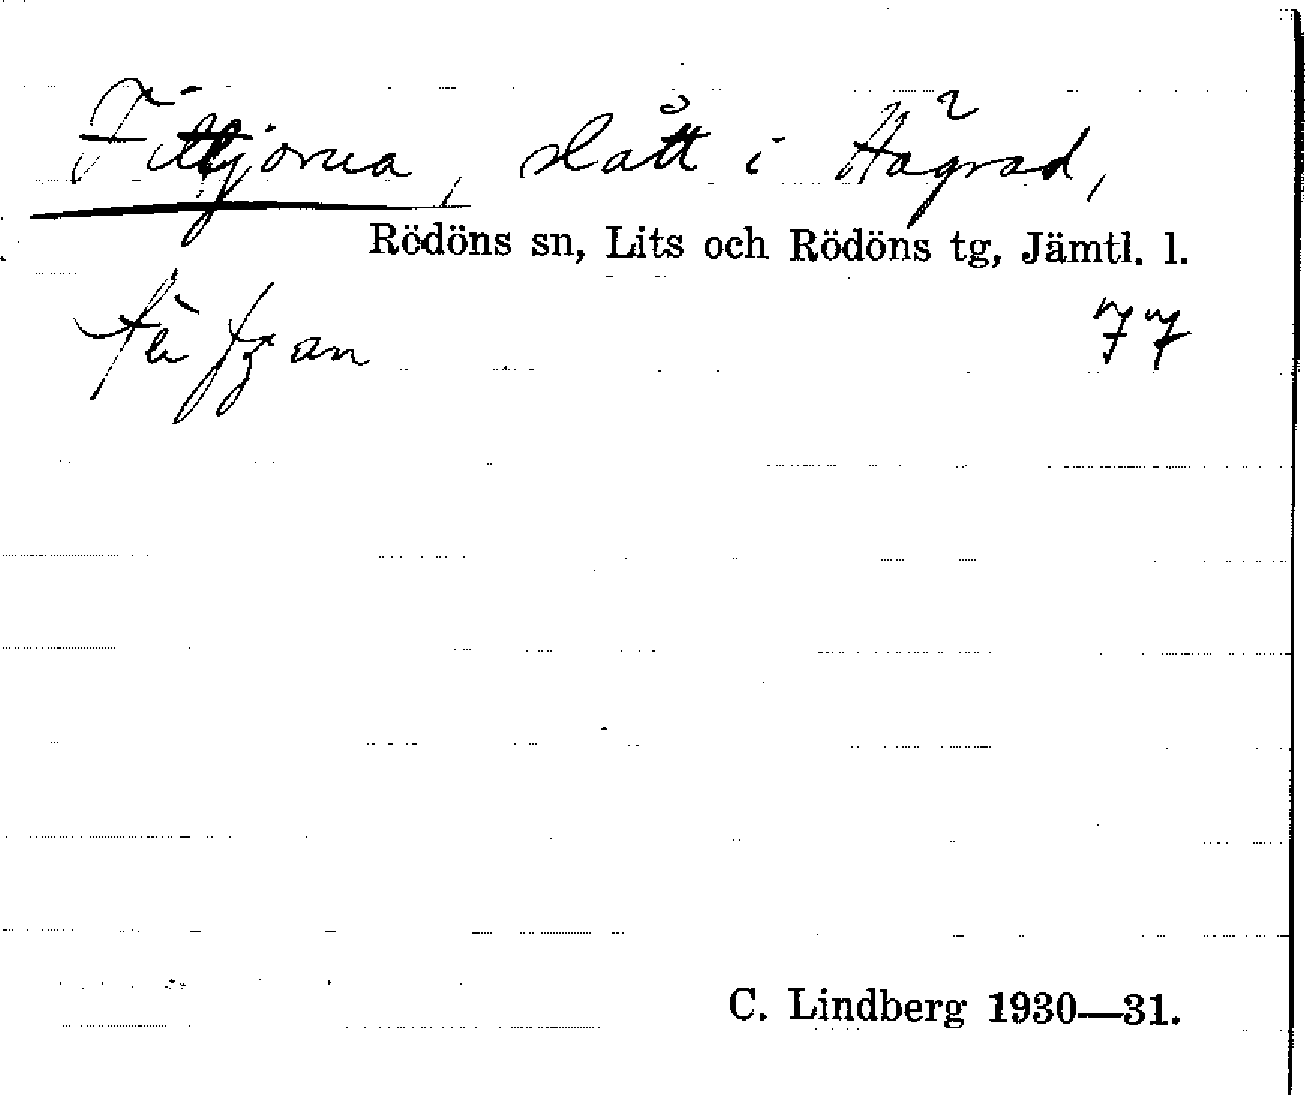 Fittjorna, slått i Hägrad,
Rödöns sn, Lits och Rödöns tg, Jämtl. l.
77
C. Lindberg 1930—31.